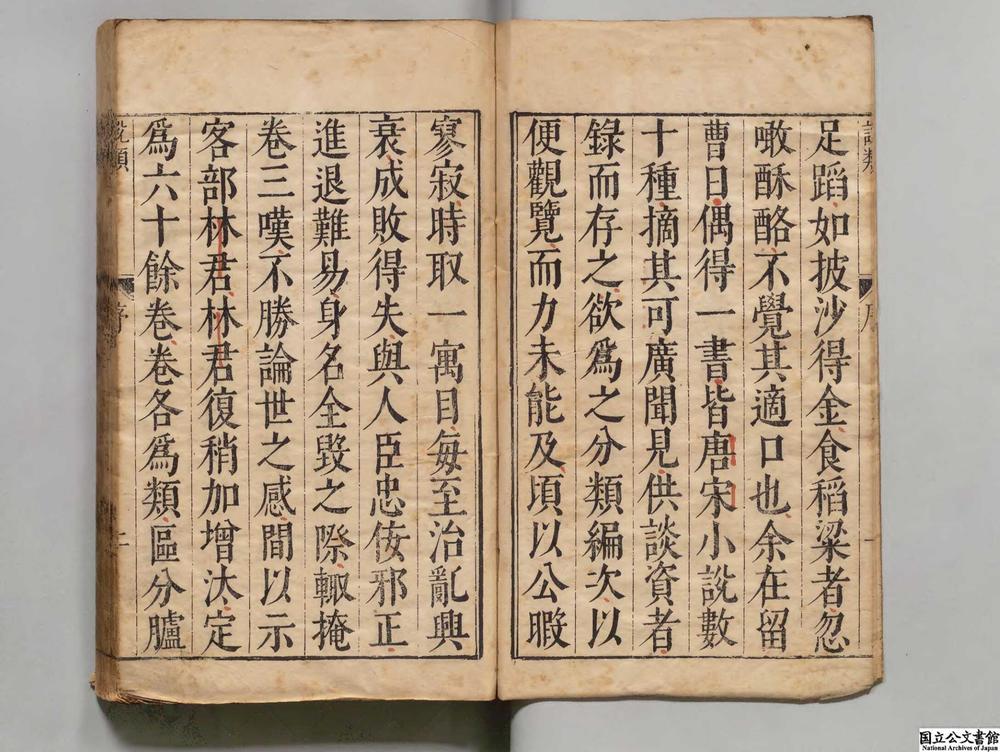 說類
序
一
足蹈如披沙得金食稻粱者忽
噉酥酪不覺其適口也余在留
曹日偶得一書皆唐宋小說數
十種摘其可廣聞見供談資者
錄而存之欲爲之分類編次以
便觀覽而力未能及頃以公暇
寥寂時取一寓目每至治亂興
衰成敗得失與人臣忠佞邪正
進退難易身名全毀之際輙掩
卷三嘆不勝論世之感間以示
客部林君林君復稍加增汰定
爲六十餘卷卷各爲類區分臚
說類
序
二
国立公文書館
National Archives of Japan